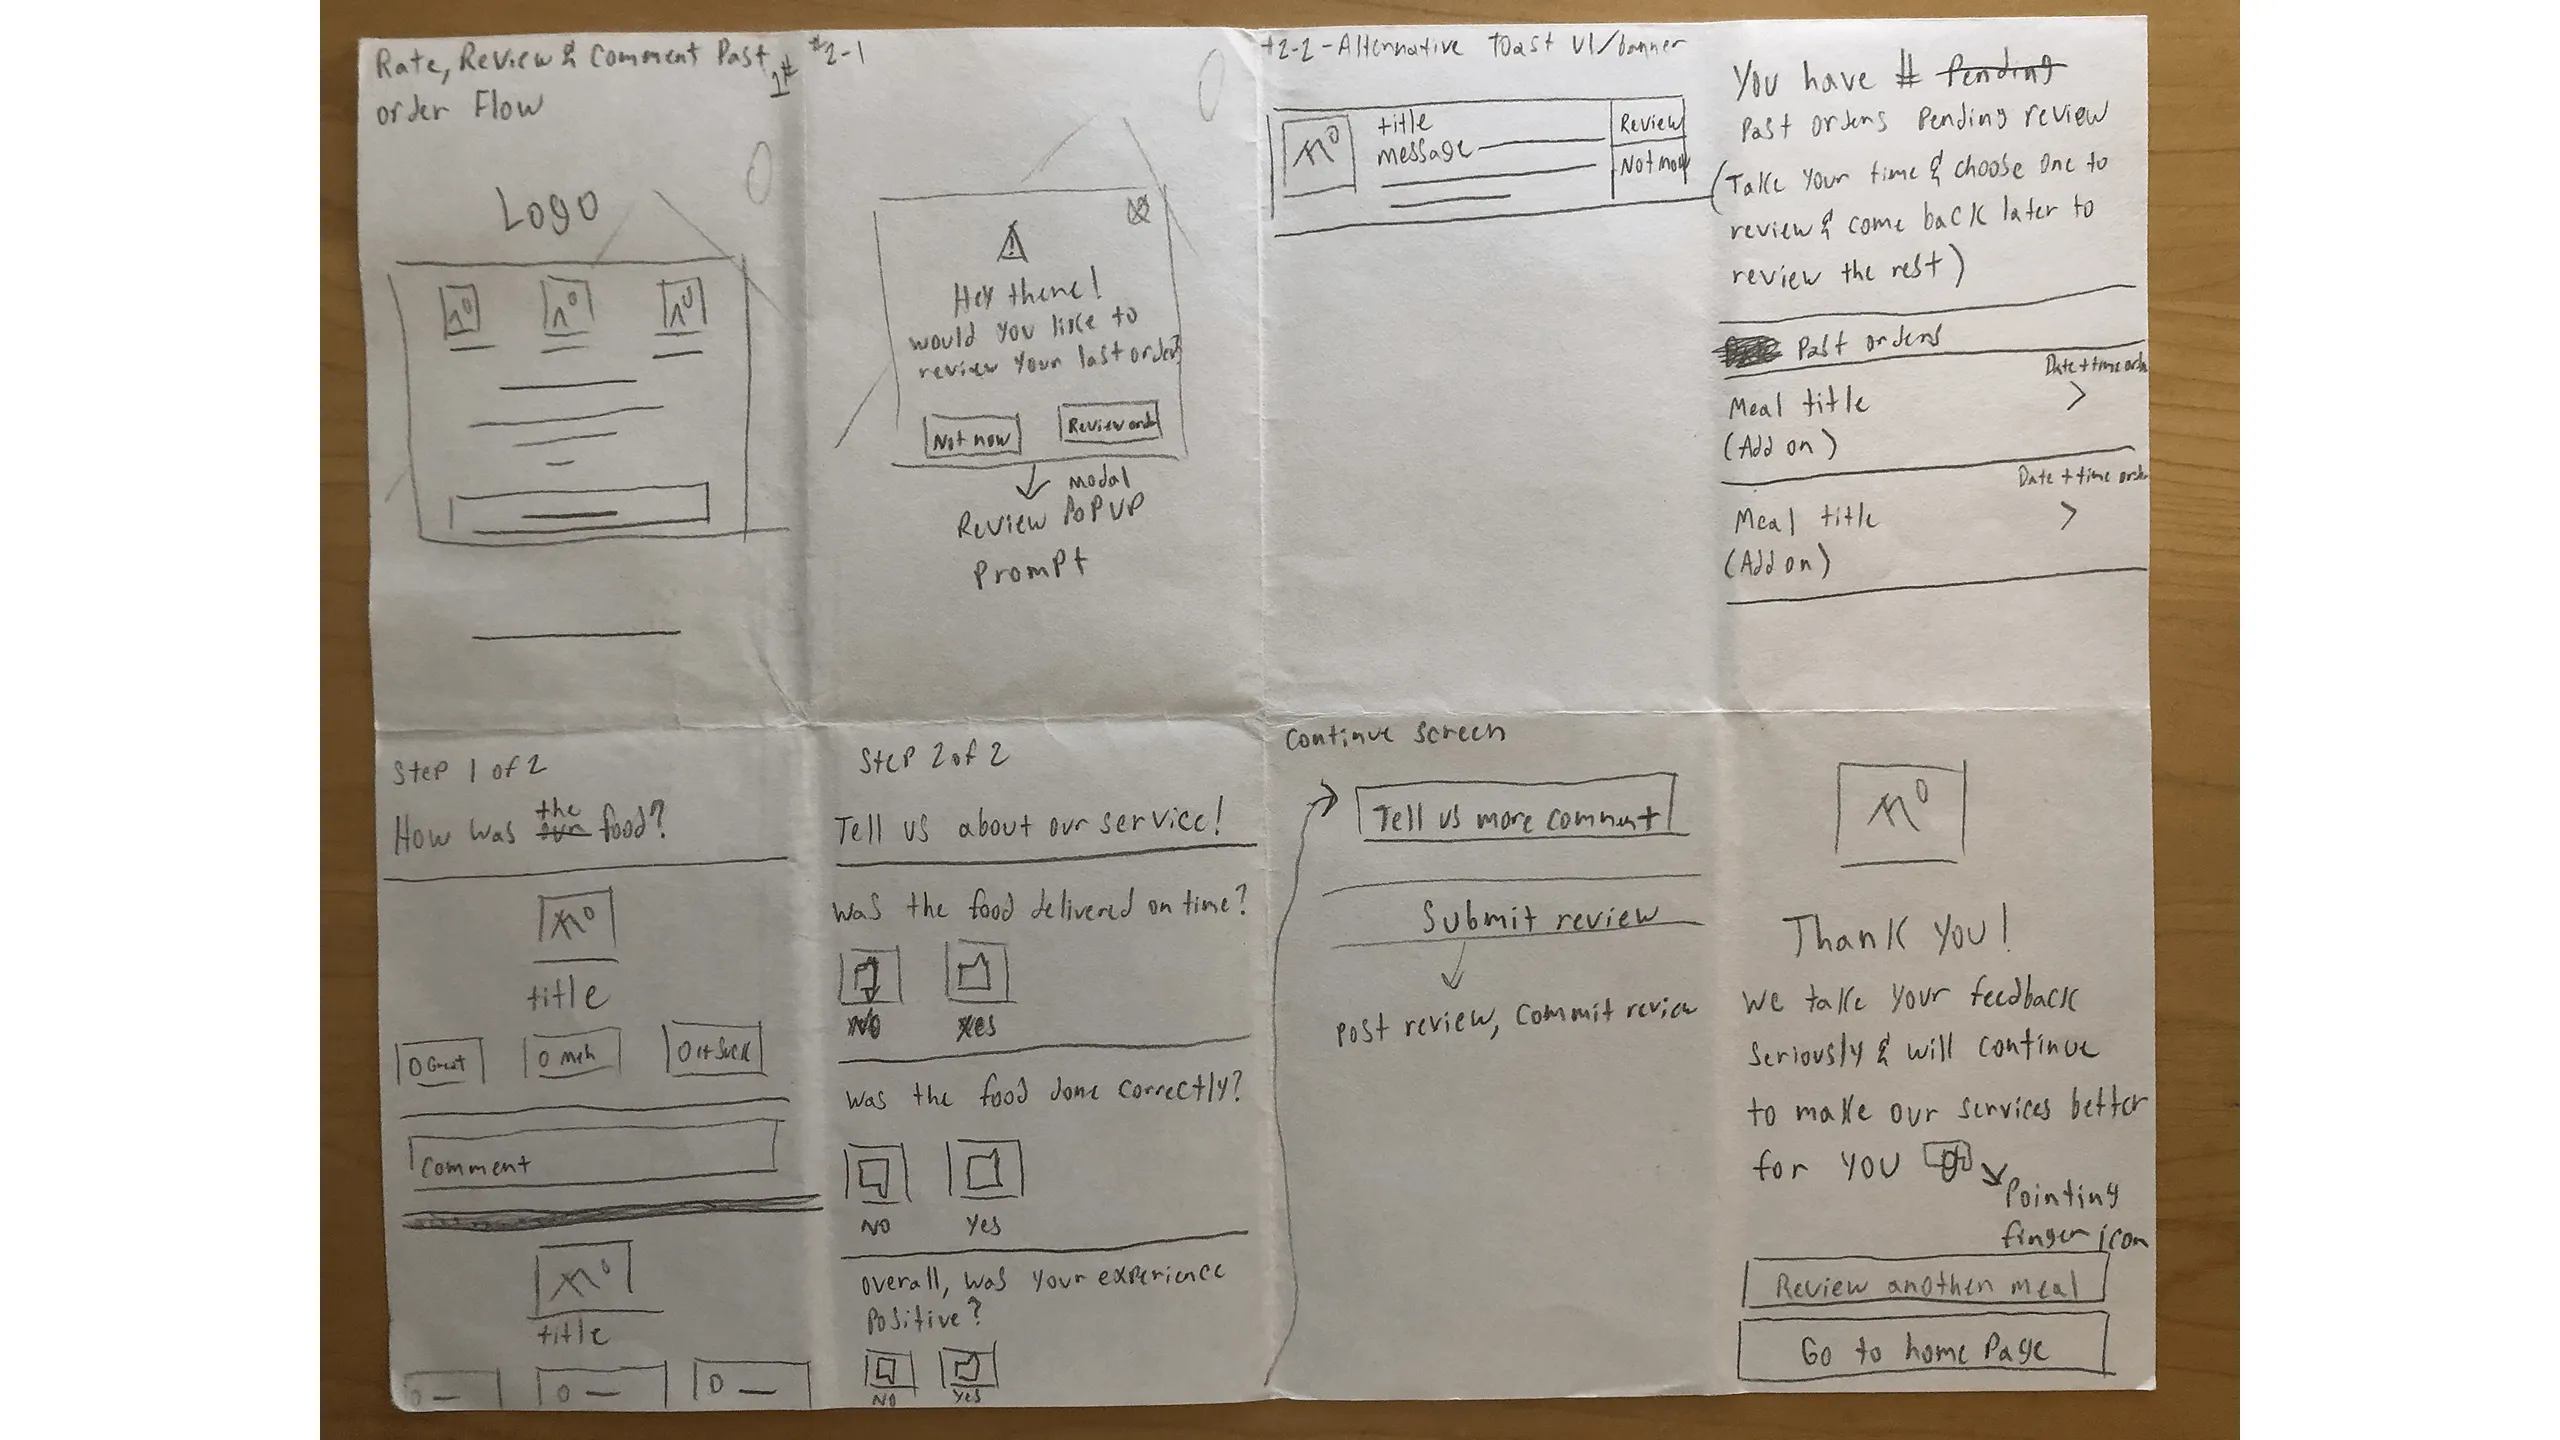 Rate, Review & Comment Past
order Flow
1#
Logo
#2-1
Hey there!
would you like to
review your last order?
Not now
Review order
modal
Review PoPUP
Prompt
#2-2-Alternative Toast UI/banner
title
message
Review
Not now
You have # Pending
Past orders Pending review
(Take your time & choose one to
review & come back later to
review the rest)
Past orders
Date + time order
Meal title
(Add on)
Date + time order
Meal title
(Add on)
Step 1 of 2
the
How was our food?
title
Great
Meh
it Suck
Comment
title
Step 2 of 2
Tell us about our service!
Was the food delivered on time?
No
Yes
Was the food done correctly?
No
Yes
Overall, was your experience
Positive?
No
Yes
Continue Screen
Tell us more comment
Submit review
Post review, Commit review
Thank You!
We take your feedback
Seriously & will continue
to make our services better
for you
Pointing
finger icon
Review another meal
Go to home Page